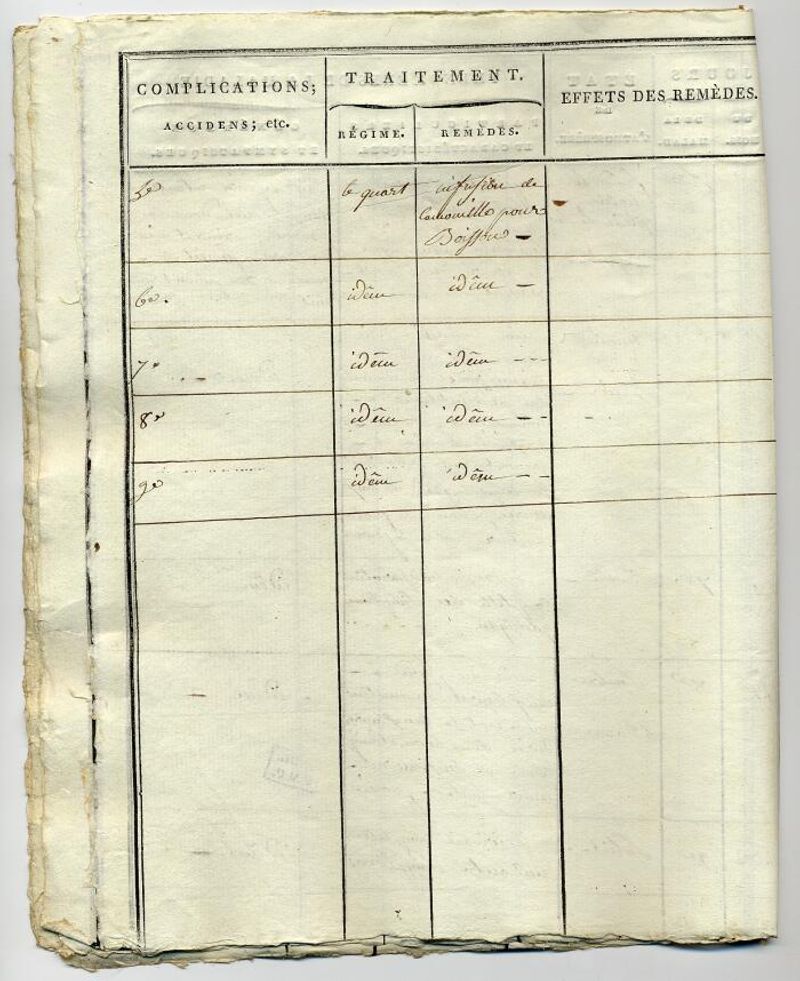 COMPLICATIONS;
ACCIDENS; etc.
TRAITEMENT.
RÉGIME.
REMÈDES.
EFFETS DES REMÈDES.
5e
le quart
infusion de
camomille pour
Boisson —
6e.
idêm
idêm —
7e
idêm
idêm - - -
8e
idêm
idêm — -
9e
idêm
idêm — -